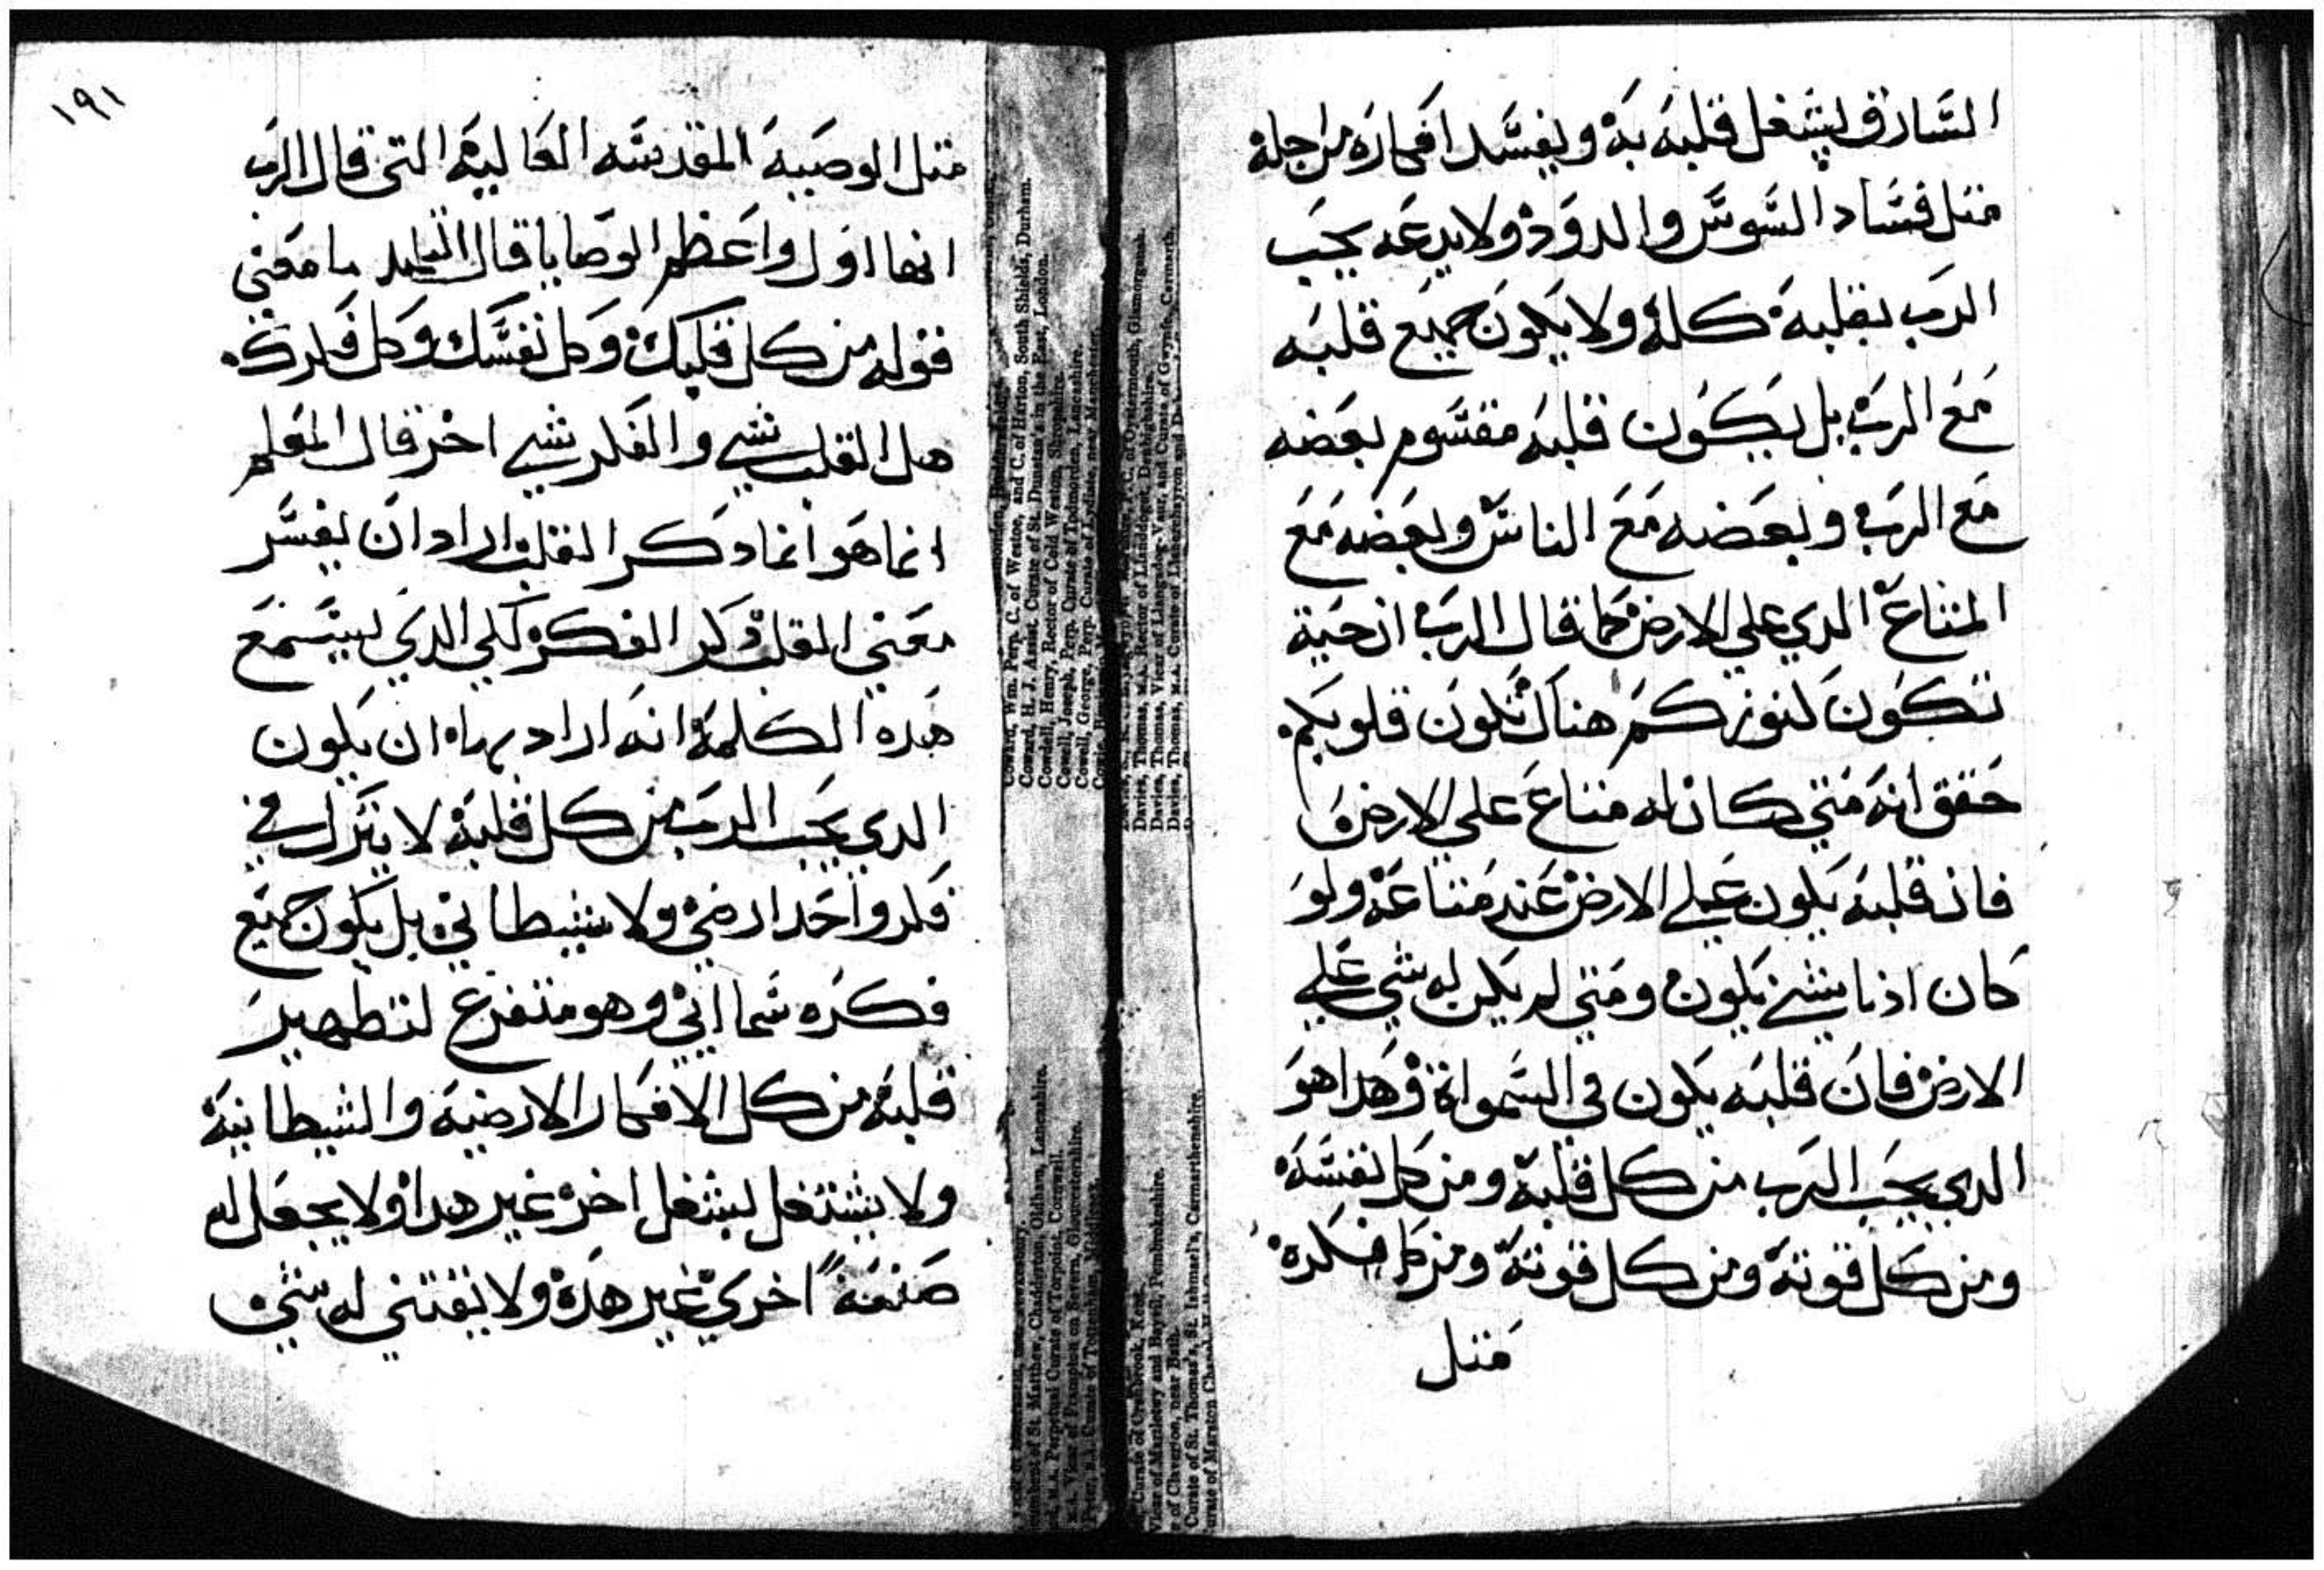 السارق ليشغل قلبه به ويفسد افكاره من اجله
متل فساد السوس والدود ولا يدعه يحب
الرب بقلبه كله ولا يكون جميع قلبه
مع الرب بل يكون قلبه مقسوم بعضه
مع الرب وبعضه مع الناس وبعضه مع
المتاع الدي علي الارض كما قال الرب ان حيت
تكون كنوزكم هناك تكون قلوبكم
حقق انه متي كان له متاع علي الارض
فان قلبه يكون علي الارض عند متاعه ولو
كان ادنا شي يكون ومتي لم يكن له شي علي
الارض فان قلبه يكون في السموات وهدا هو
الدي يحب الرب من كل قلبه ومن كل نفسه
ومن كل قوته ومن كل قوته ومن كل فكره
متل
١٩١
متل الوصيه المقدسه العاليه التي قال الرب
انها اول واعظم الوصايا قال التلميد ما معني
قوله من كل قلبك وكل نفسك وكل فكرك
هل القلب شي والفكر شي اخر قال المعلم
انما هو انما دكر القلب اراد ان يفسر
معني القلب دكر الفكر لكي الدي يستمع
هده الكلمه انه اراد بها ان يكون
الدي يحب الرب من كل قلبه لا يترك في
فكر واحد ارضي ولا شيطاني بل يكون جميع
فكره شمااني وهو متفرغ لتطهير
قلبه من كل الافكار الارضيه والشيطانيه
ولا يشتغل بشغل اخر غير هدا ولا يجعل له
صنعة اخري غير هده ولا يقتني له شي